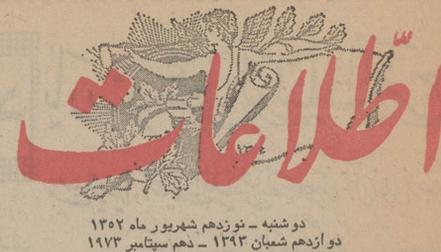 اطّلاعات
دوشنبه ـ نوزدهم شهریور ماه ۱۳۵۲
دوازدهم شعبان ۱۳۹۳ ـ دهم سپتامبر ۱۹۷۳